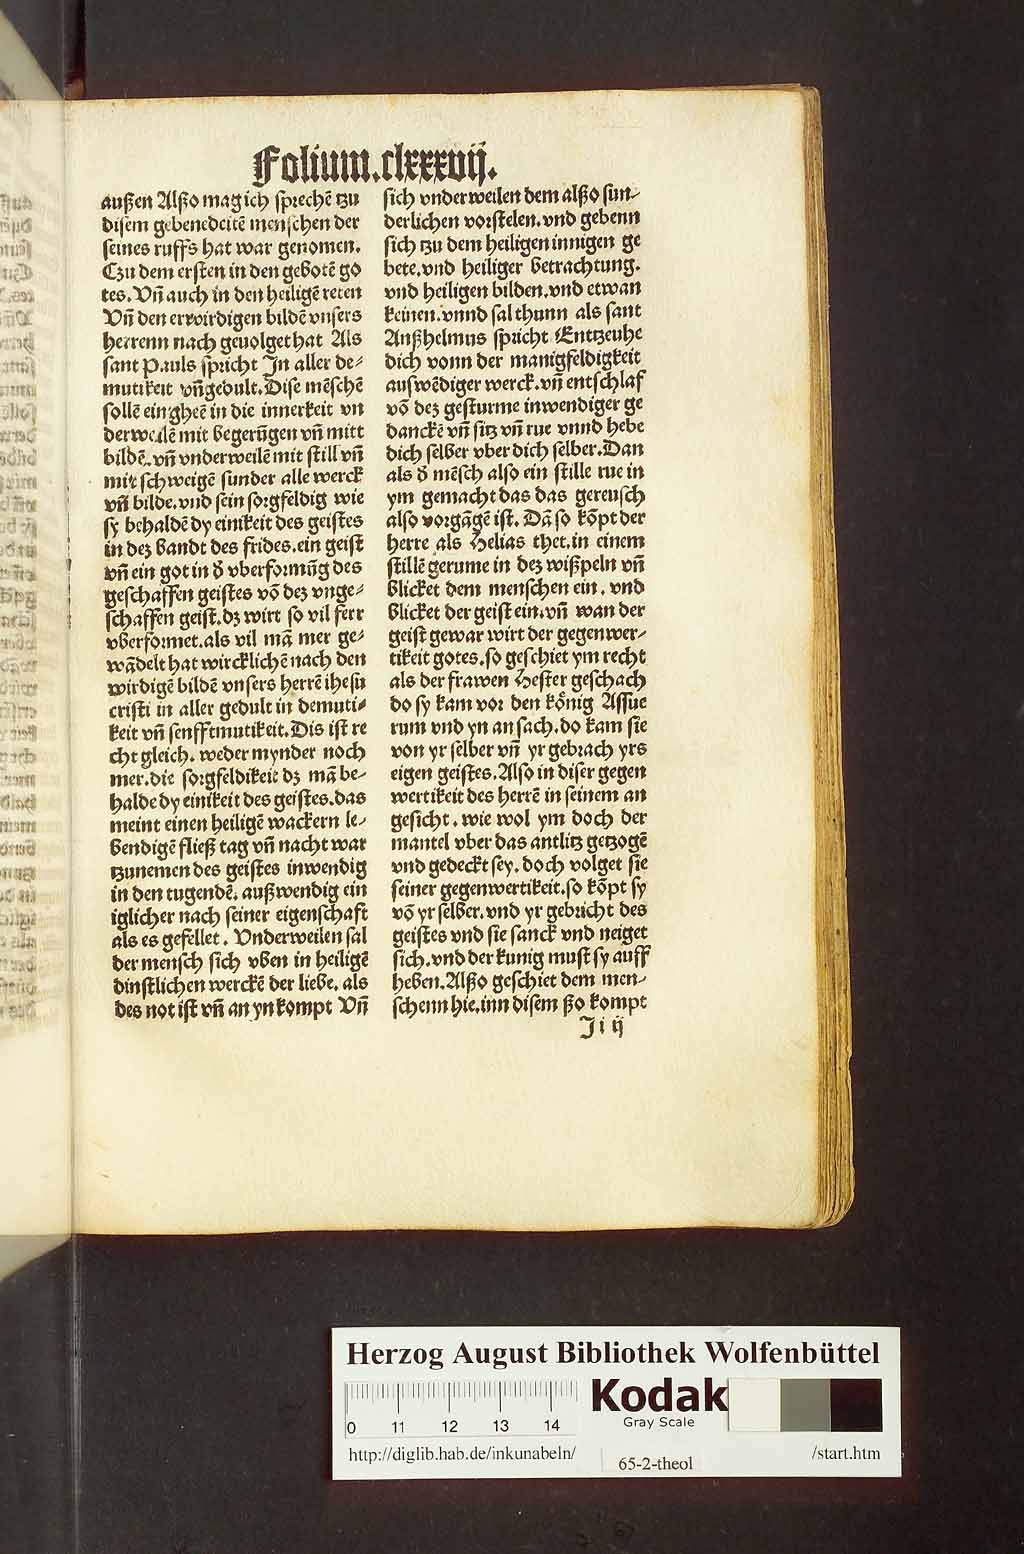 Folium.clxxxvij.
außen Alßo mag ich sprechē tzu
disem gebenedeitē menschen der
seines ruffs hat war genomen.
Czu dem ersten in den gebotē go
tes. Vñ auch in den heiligē reten
Vñ den erwirdigen bildē vnsers
herrenn nach geuolget hat Als
sant Pauls spricht Jn aller de⸗
mutikeit vñ gedult. Dise mēschē
sollē eingheē in die innerkeit vn
derweilē mit begerūgen vñ mitt
bildē. vñ vnderweilē mit still vñ
mit schweigē sunder alle werck
vñ bilde. vnd sein sorgfeldig wie
sy behaldē dy einikeit des geistes
in dez bandt des frides. ein geist
vñ ein got in d̄ vberformūg des
geschaffen geistes vō dez vnge⸗
schaffen geist. dz wirt so vil ferr
vberformet. als vil mā mer ge⸗
wādelt hat wircklichē nach den
wirdigē bildē vnsers herrē ihesu
cristi in aller gedult in demuti⸗
keit vñ senfftmutikeit. Dis ist re
cht gleich. weder mynder noch
mer. die sorgfeldikeit dz mā be⸗
halde dy einikeit des geistes. das
meint einen heiligē wackern le⸗
bendigē fließ tag vñ nacht war
tzunemen des geistes inwendig
in den tugendē. außwendig ein
iglicher nach seiner eigenschaft
als es gefellet. Vnderweilen sal
der mensch sich vben in heiligē
dinstlichen werckē der liebe. als
des not ist vñ an yn kompt Vñ
sich vnderweilen dem alßo sun⸗
derlichen vorstelen. vnd gebenn
sich tzu dem heiligen innigen ge
bete. vnd heiliger betrachtung.
vnd heiligen bilden. vnd etwan
keinen. vnnd sal thunn als sant
Anßhelmus spricht Entzeuhe
dich vonn der manigfeldigkeit
auswēdiger werck. vñ entschlaf
vō dez gesturme inwendiger ge
danckē vñ sitz vñ rue vnnd hebe
dich selber vber dich selber. Dan
als d̄ mēsch also ein stille rue in
ym gemacht das das gereusch
also vorgāgē ist. Dā so kōpt der
herre als Helias thet. in einem
stillē gerume in dez wißpeln vñ
blicket dem menschen ein. vnd
blicket der geist ein. vñ wan der
geist gewar wirt der gegenwer⸗
tikeit gotes. so geschiet ym recht
als der frawen Hester geschach
do sy kam vor den kônig Assue
rum vnd yn an sach. do kam sie
von yr selber vñ yr gebrach yrs
eigen geistes. Also in diser gegen
wertikeit des herrē in seinem an
gesicht. wie wol ym doch der
mantel vber das antlitz getzogē
vnd gedeckt sey. doch volget sie
seiner gegenwertikeit. so kōpt sy
vō yr selber. vnd yr gebricht des
geistes vnd sie sanck vnd neiget
sich. vnd der kunig must sy auff
heben. Alßo geschiet dem men⸗
schenn hie. inn disem ßo kompt
Ji ij
Herzog August Bibliothek Wolfenbüttel
0 11 12 13 14
Kodak
Gray Scale
http://diglib.hab.de/inkunabeln/
65-2-theol
/start.htm